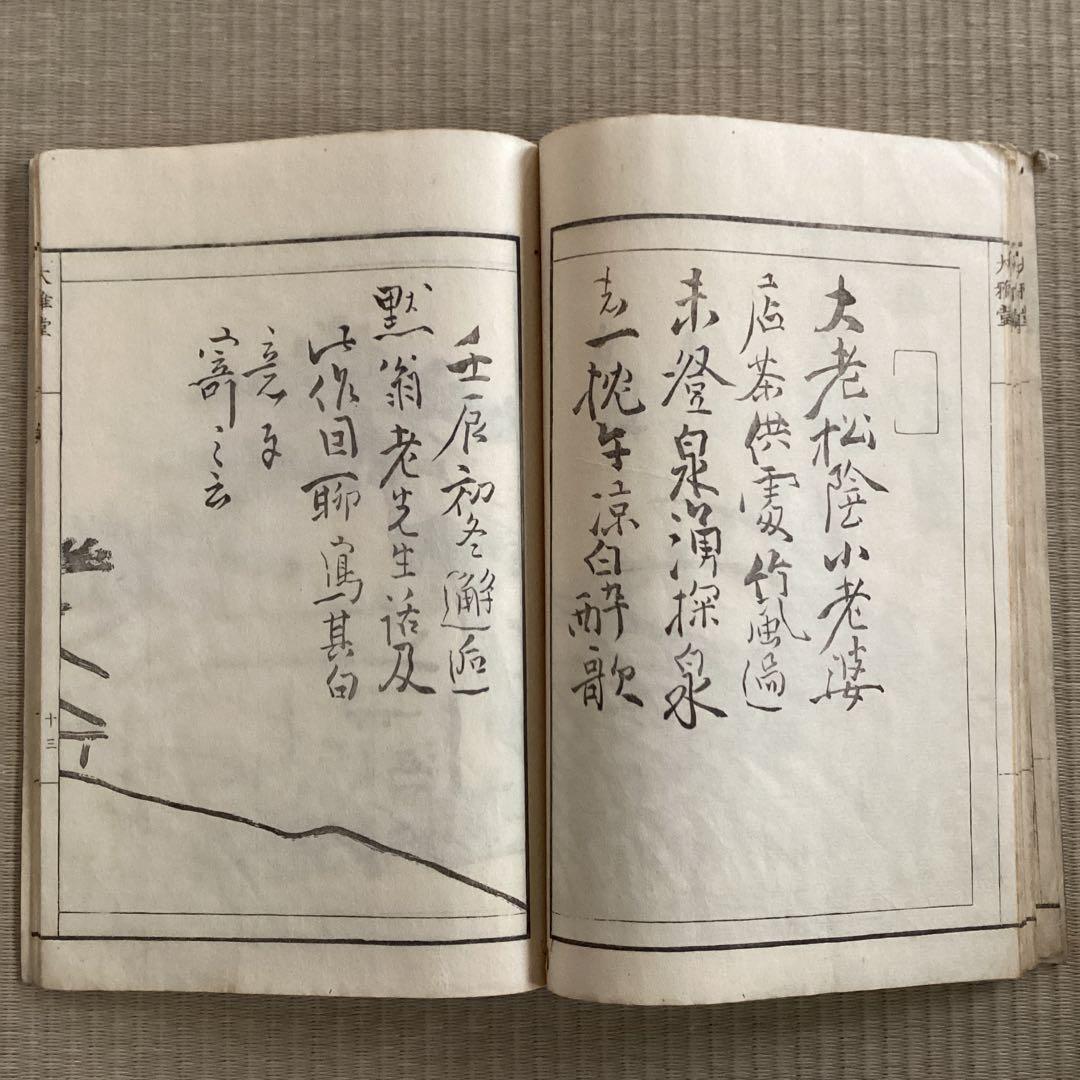 大雅堂
大老松陰小老婆
店茶供處竹風過
未澄泉湧探泉
一枕午涼白醉歌
壬辰初冬邂逅
默翁老先生話及
此作因聊寫其句
意
寄之云
大雅堂
十三